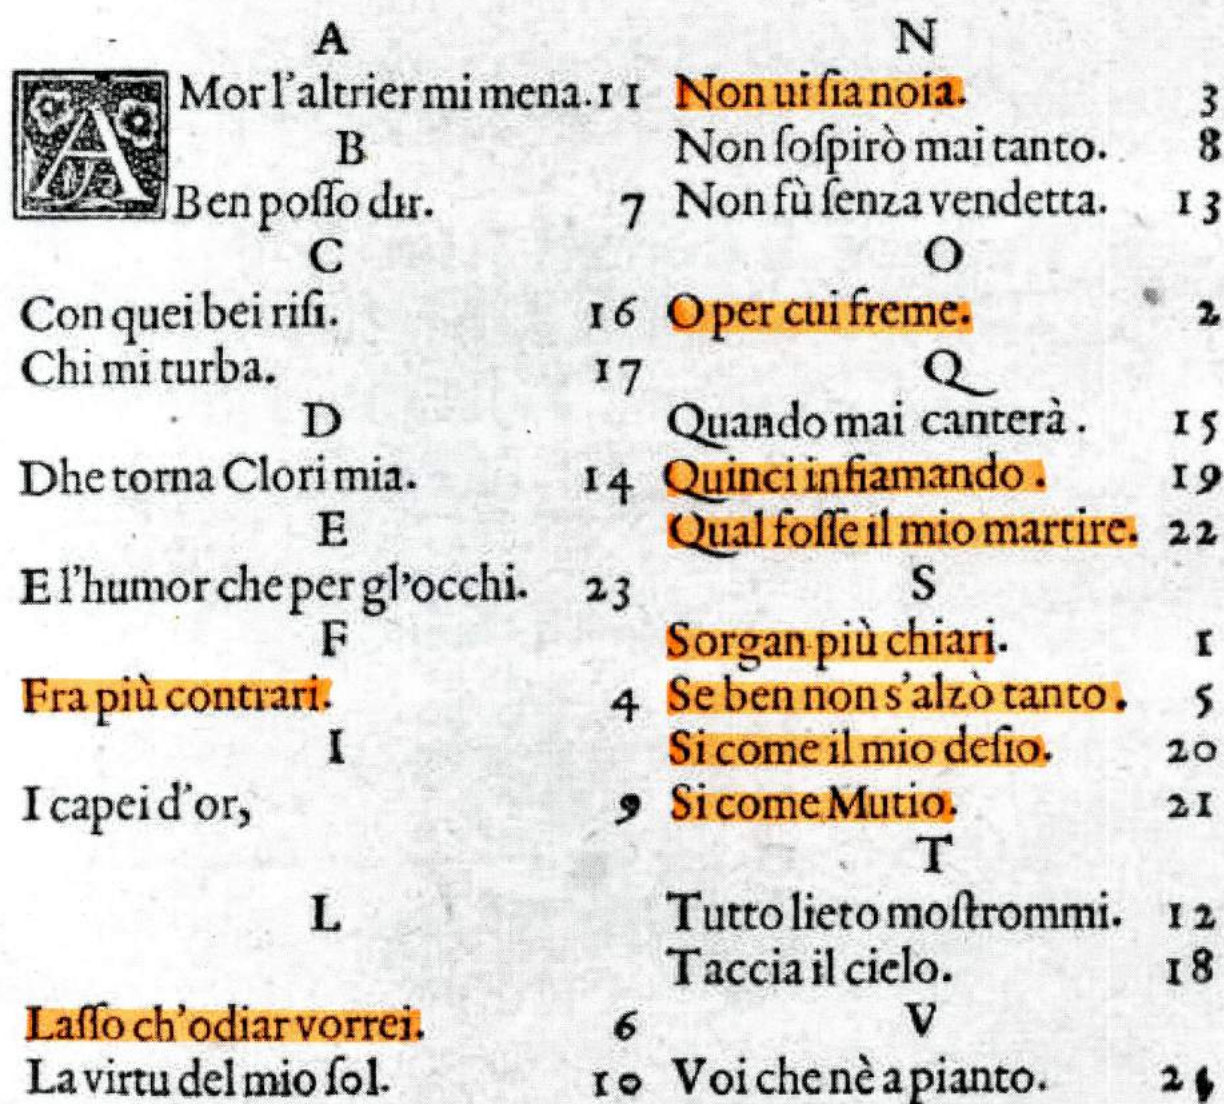 A
AMor l'altrier mi mena. 11
B
Ben posso dir. 7
C
Con quei bei risi. 16
Chi mi turba. 17
D
Dhe torna Clori mia. 14
E
E l'humor che per gl'occhi. 23
F
Fra più contrari. 4
I
I capei d'or, 9
L
Lasso ch'odiar vorrei. 6
La virtu del mio sol. 10
N
Non ui sia noia. 3
Non sospirò mai tanto. 8
Non fù senza vendetta. 13
O
O per cui freme. 2
Q
Quando mai canterà. 15
Quinci infiamando. 19
Qual fosse il mio martire. 22
S
Sorgan più chiari. 1
Se ben non s'alzò tanto. 5
Si come il mio desio. 20
Si come Mutio. 21
T
Tutto lieto mostrommi. 12
Taccia il cielo. 18
V
Voi che nè a pianto. 24